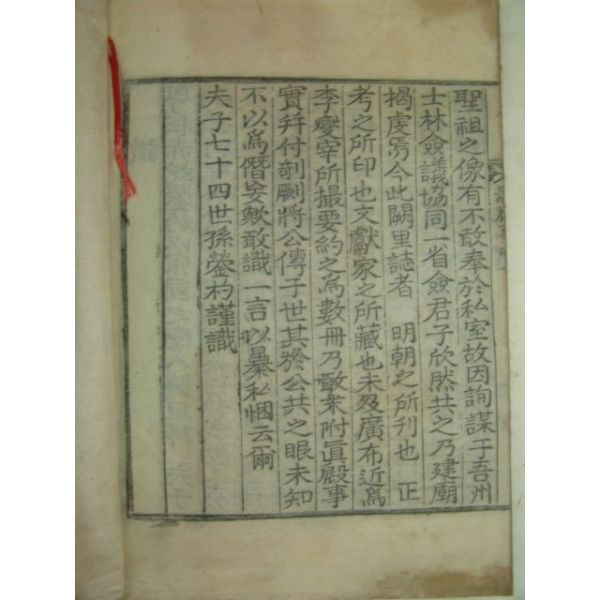 聖祖之像有不敢奉於私室故因詢謀于吾州
士林僉議協同一省僉君子欣然共之乃建廟
揭虔焉今此闕里誌者 明朝之所刊也 正
考之所印也文獻家之所藏也未及廣布近爲
李燮宰所撮要約之爲數冊乃敢來附眞殿事
實幷付剞劂將公傳于世其於公共之眼未知
不以爲僭妄歟敢識一言以暴私悃云爾
夫子七十四世孫鎣杓謹識